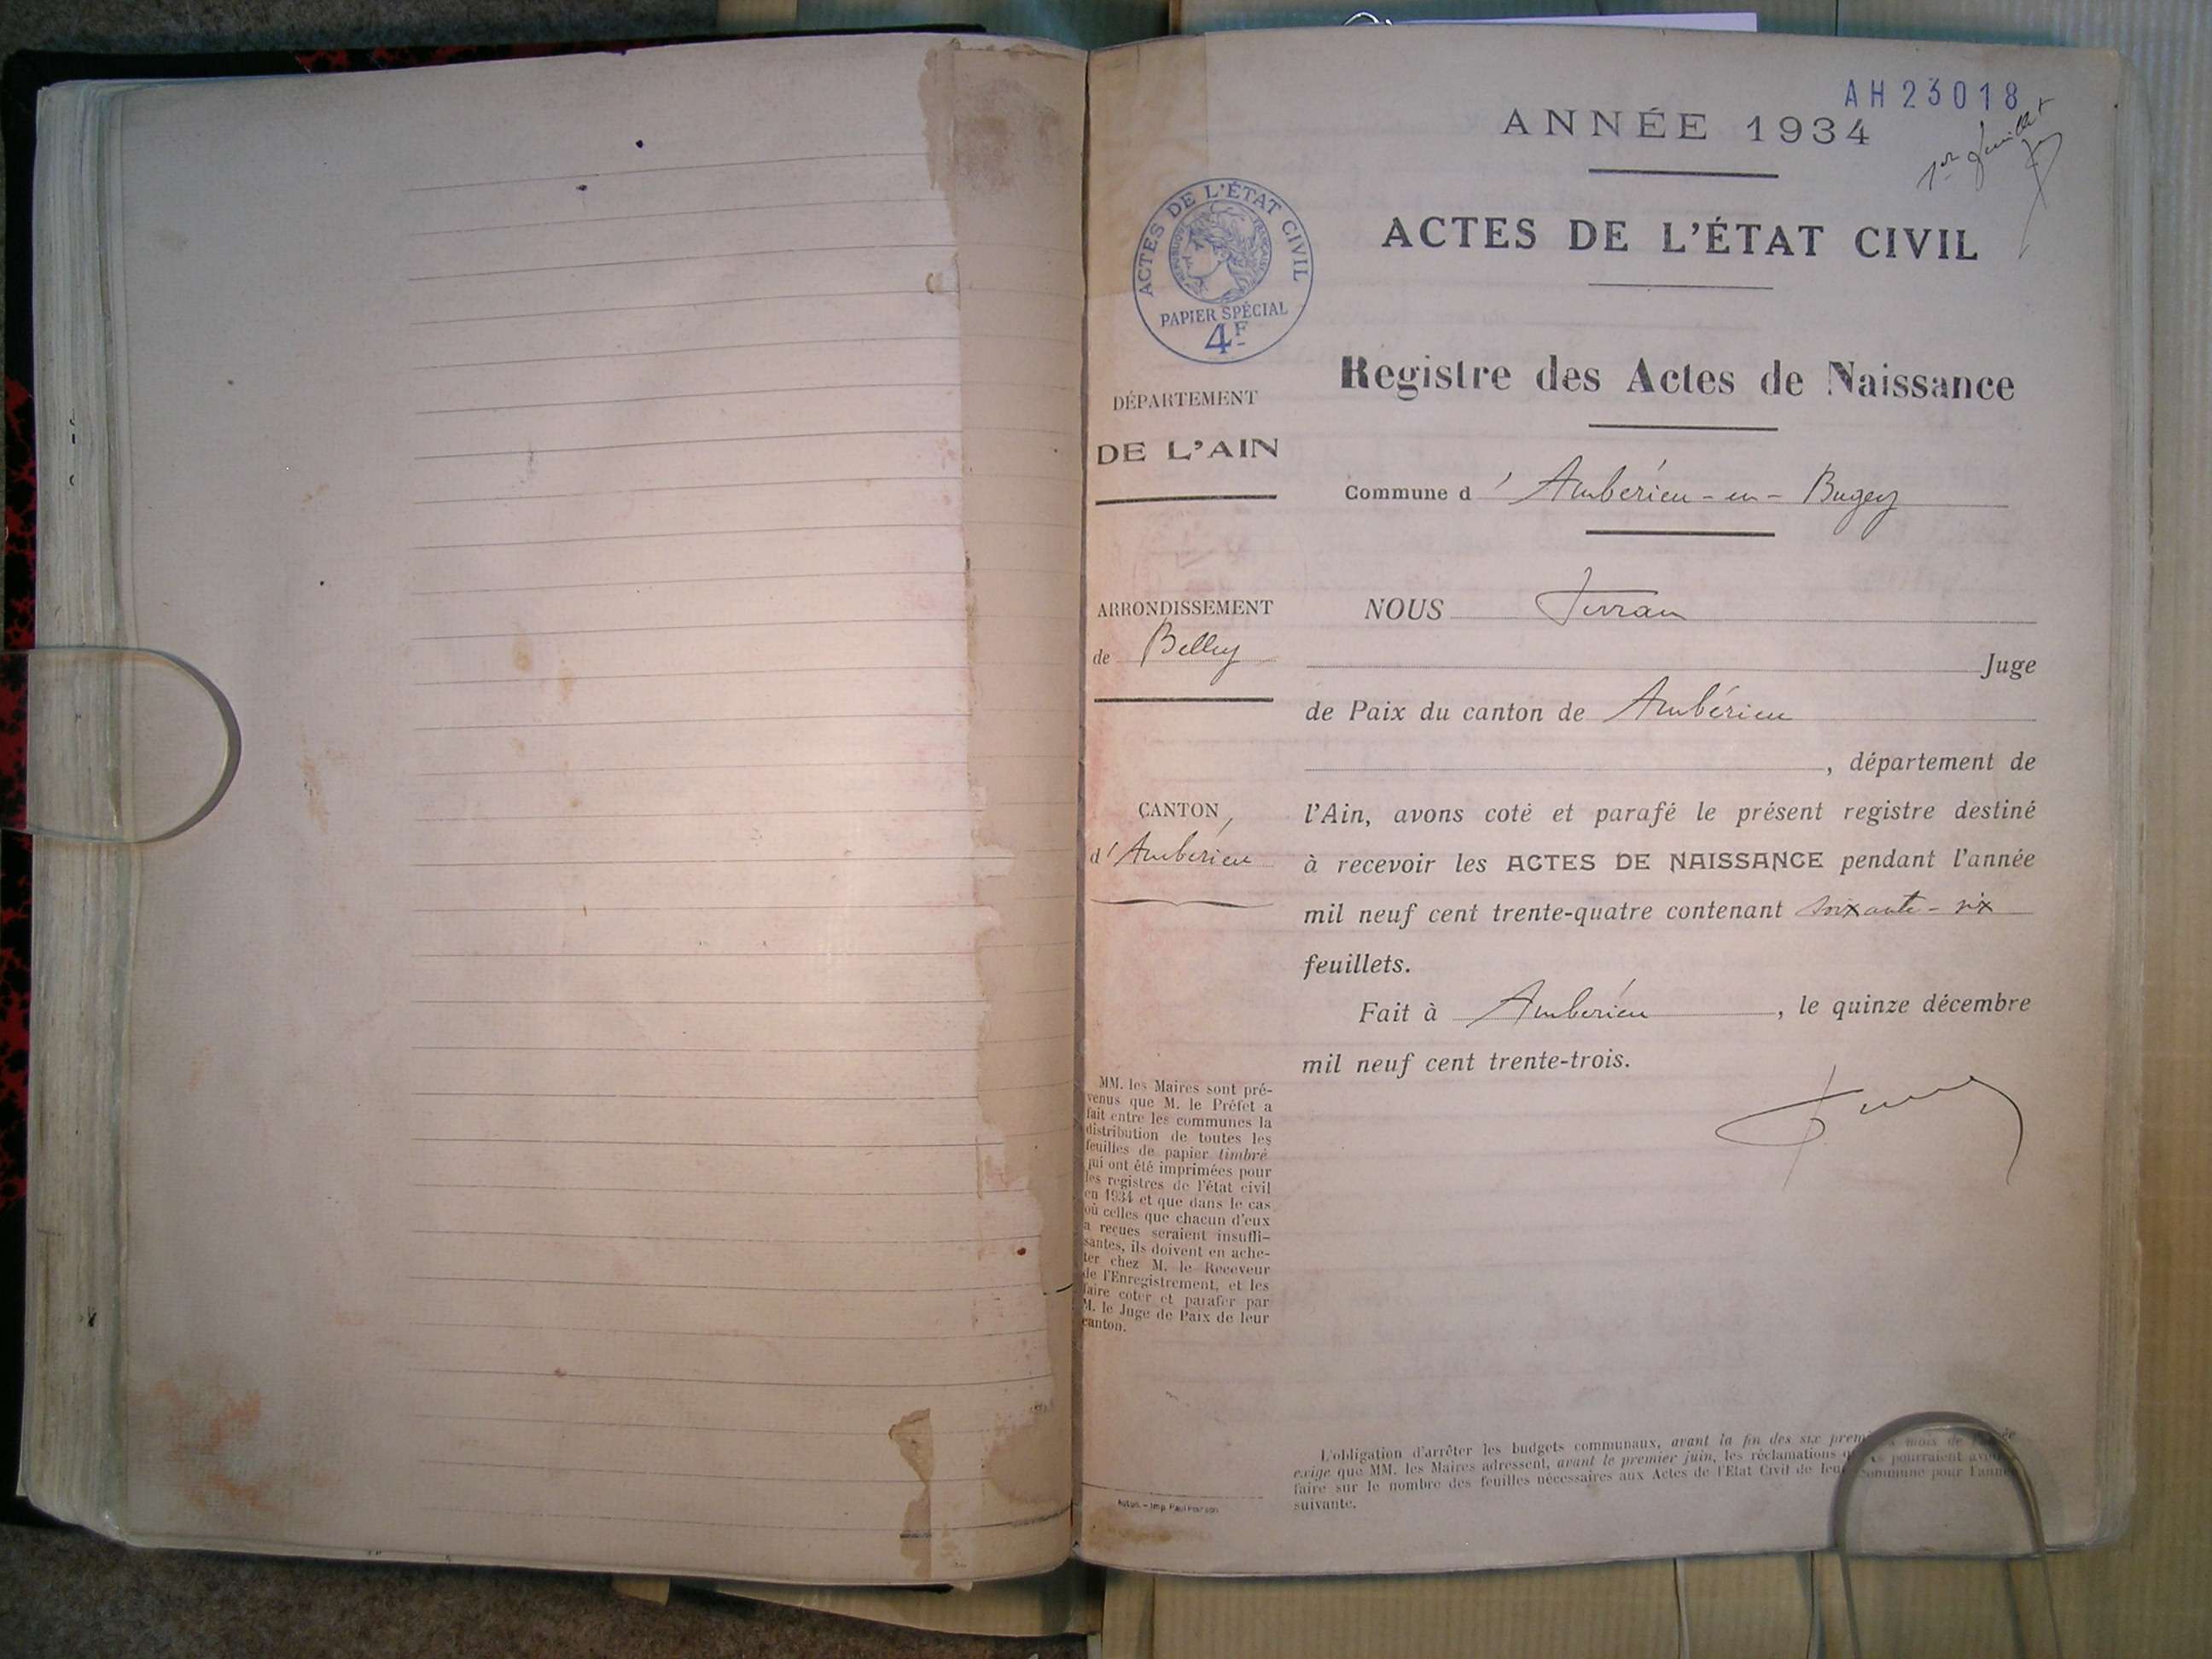 AH 23018
ANNÉE 1934
1er feuillet
ACTES DE L'ÉTAT CIVIL
PAPIER SPÉCIAL
4F
ACTES DE L'ÉTAT CIVIL
Registre des Actes de Naissance
DÉPARTEMENT
DE L'AIN
Commune d'Ambérieu-en-Bugey
ARRONDISSEMENT
de Belley
CANTON
d'Ambérieu
NOUS
Juge
de Paix du canton de Ambérieu
, département de
l'Ain, avons coté et parafé le présent registre destiné
à recevoir les ACTES DE NAISSANCE pendant l'année
mil neuf cent trente-quatre contenant soixante-six
feuillets.
Fait à Ambérieu, le quinze décembre
mil neuf cent trente-trois.
MM. les Maires sont pré-
venus que M. le Préfet a
fait entre les communes la
distribution de toutes les
feuilles de papier timbré
qui ont été imprimées pour
les registres de l'état civil
en 1934 et que dans le cas
où celles que chacun d'eux
a reçues seraient insuffi-
santes, ils doivent en ache-
ter chez M. le Receveur
de l'Enregistrement, et les
faire coter et parafer par
M. le Juge de Paix de leur
canton.
L'obligation d'arrêter les budgets communaux, avant la fin des six premiers mois de l'année
exige que MM. les Maires adressent, avant le premier juin, les réclamations qu'ils pourraient avoir
faire sur le nombre des feuilles nécessaires aux Actes de l'Etat Civil de leur commune pour l'année
suivante.